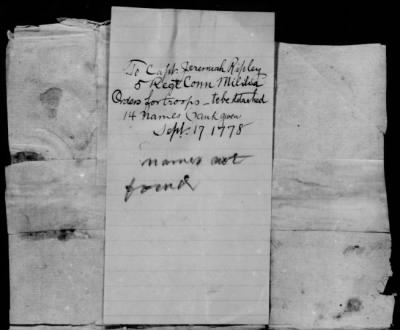 To Capt. Jeremiah Ripley
5 Regt Conn Militia
Orders for troops - to be detached
14 names rank given
Sept. 17 1778
names not
found